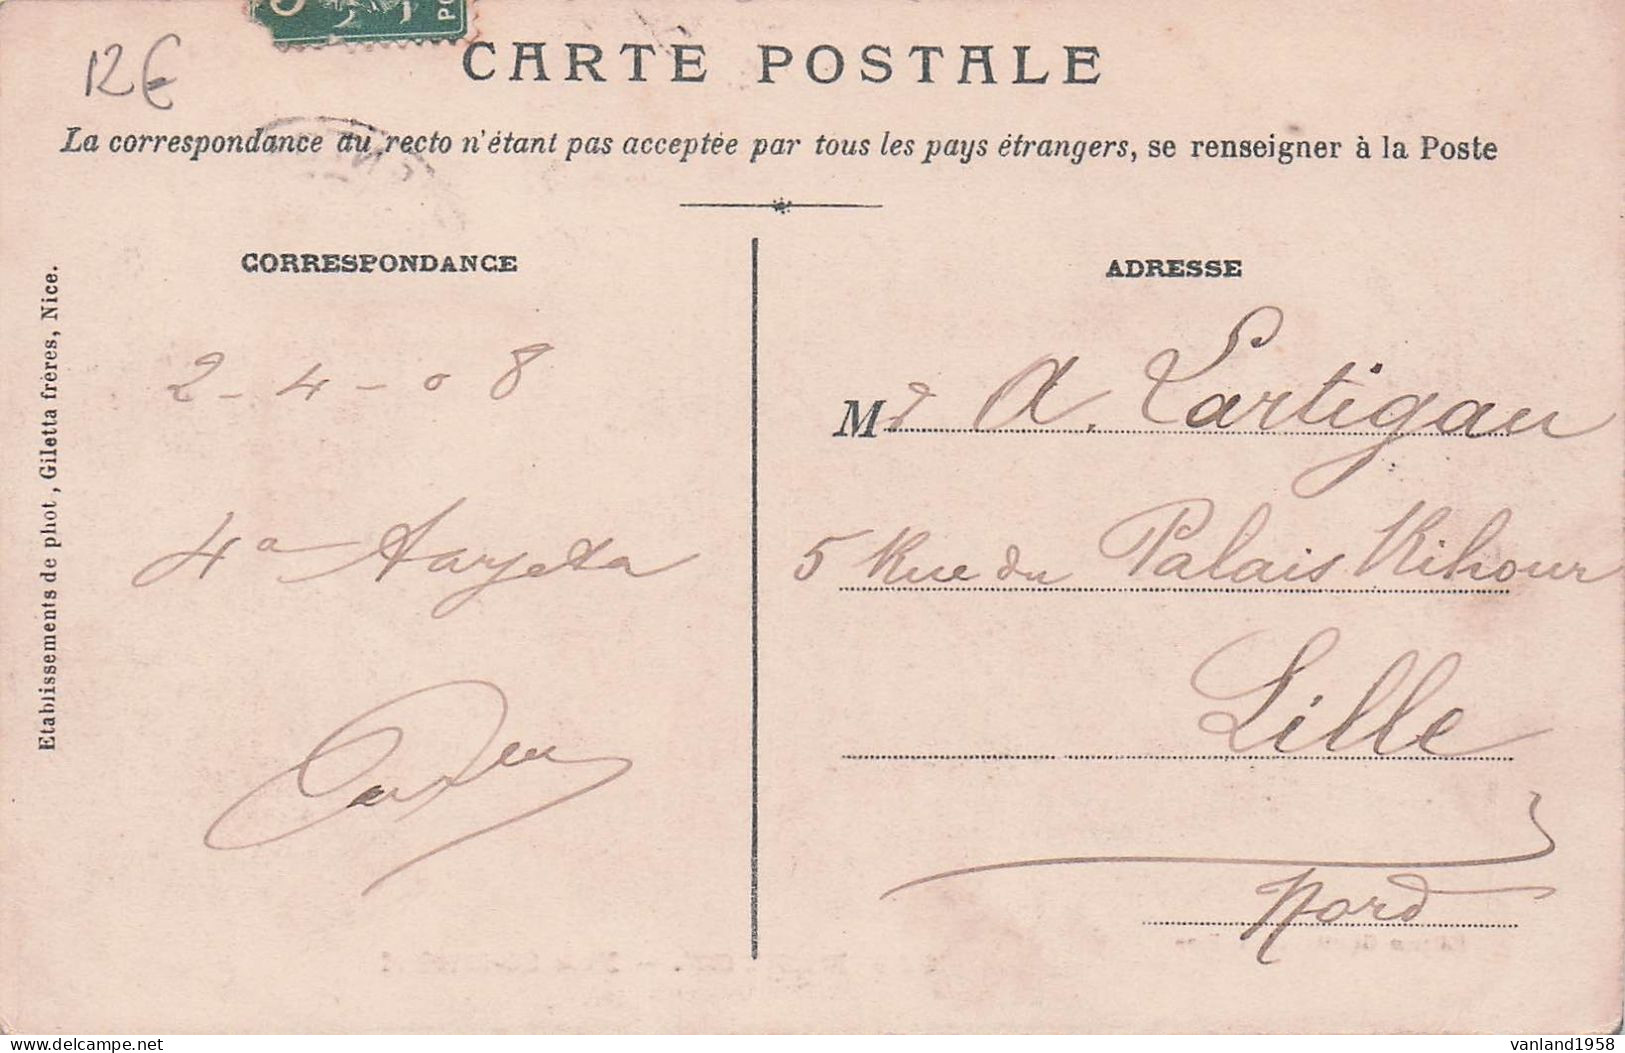 12€
CARTE POSTALE
La correspondance au recto n'étant pas acceptée par tous les pays étrangers, se renseigner à la Poste
CORRESPONDANCE
2-4-08
4a
Etablissements de phot, Giletta frères, Nice.
ADRESSE
Mr A. Lartigau
5 Rue du Palais Rihour
Lille
Nord
vanland1958